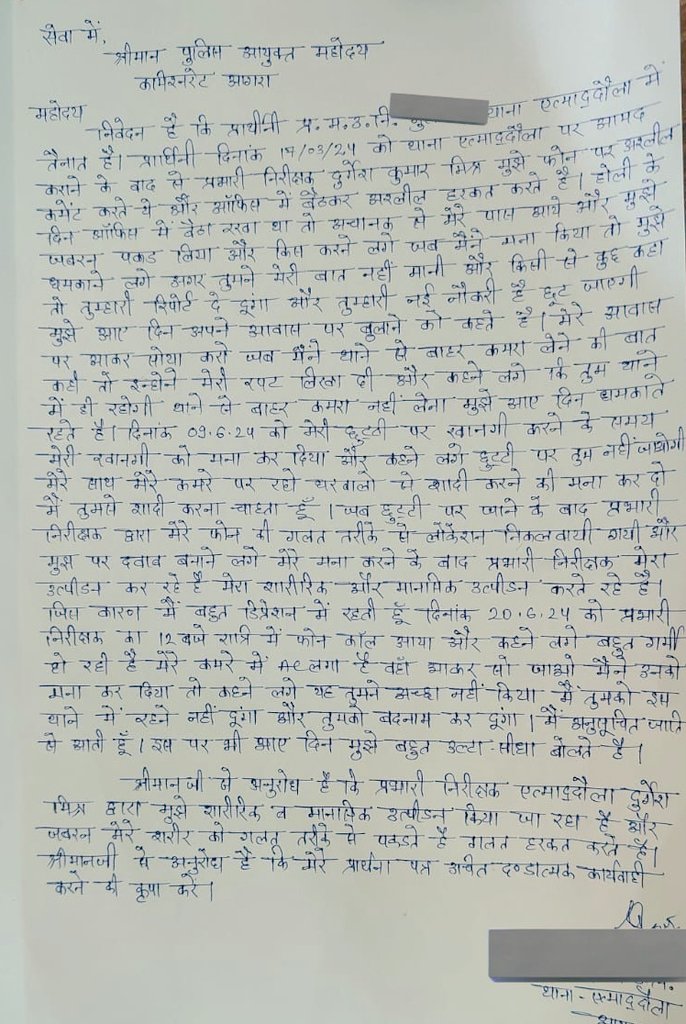 सेवा में,
श्रीमान पुलिस आयुक्त महोदय
कमिश्नरेट आगरा
महोदय
निवेदन है कि प्रार्थिनी प्र. म. उ. नि. थाना एत्माद्दौला में
तैनात है। प्रार्थिनी दिनांक 17/03/24 को थाना एत्माद्दौला पर आमद
कराने के बाद से प्रभारी निरीक्षक दुर्गेश कुमार मिश्र मुझे फोन पर अश्लील
कमेंट करते थे और ऑफिस में बैठकर अश्लील हरकत करते है। होली के
दिन ऑफिस में बैठा रखा था तो अचानक से मेरे पास आये और मुझे
जबरन पकड लिया और किस करने लगे जब मैंने मना किया तो मुझे
धमकाने लगे अगर तुमने मेरी बात नहीं मानी और किसी से कुछ कहा
तो तुम्हारी रिपोर्ट दे दूंगा और तुम्हारी नई नौकरी है छूट जाएगी
मुझे आए दिन अपने आवास पर बुलाने को कहते है। मेरे आवास
पर आकर सोया करो जब मैंने थाने से बाहर कमरा लेने की बात
कही तो इन्होने मेरी रपट लिखा दी और कहने लगे कि तुम थाने
में ही रहोगी थाने से बाहर कमरा नहीं लेना मुझे आए दिन धमकाते
रहते है। दिनांक 09.6.24 को मेरी छुट्टी पर रवानगी करने के समय
मेरी रवानगी को मना कर दिया और कहने लगे छुट्टी पर तुम नहीं जाओगी
मेरे साथ मेरे कमरे पर रहो घरवालो से शादी करने की मना कर दो
मैं तुमसे शादी करना चाहता हूँ। जब छुट्टी पर जाने के बाद प्रभारी
निरीक्षक द्वारा मेरे फोन की गलत तरीके से लोकेशन निकलवायी गयी और
मुझ पर दवाब बनाने लगे मेरे मना करने के बाद प्रभारी निरीक्षक मेरा
उत्पीडन कर रहे है मेरा शारीरिक और मानसिक उत्पीडन करते रहे है।
जिस कारण मैं बहुत डिप्रेशन में रहती हूँ दिनांक 20.6.24 को प्रभारी
निरीक्षक का 12 बजे रात्रि में फोन कॉल आया और कहने लगे बहुत गर्मी
हो रही है मेरे कमरे में AC लगा है वहाँ आकर सो जाओ मैंने उनको
मना कर दिया तो कहने लगे यह तुमने अच्छा नहीं किया मैं तुमको इस
थाने में रहने नहीं दूंगा और तुमको बदनाम कर दूंगा। मैं अनुसूचित जाति
से आती हूँ। इस पर भी आए दिन मुझे बहुत उल्टा सीधा बोलते है।
श्रीमान जी से अनुरोध है कि प्रभारी निरीक्षक एत्माद्दौला दुर्गेश
मिश्र द्वारा मुझे शारीरिक व मानसिक उत्पीडन किया जा रहा है और
जबरन मेरे शरीर को गलत तरीके से पकडते है गलत हरकत करते है।
श्रीमानजी से अनुरोध है कि मेरे प्रार्थना पत्र उचित दण्डात्मक कार्यवाही
करने की कृपा करें।
थाना - एत्माद्दौला